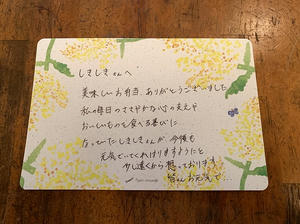 しきしきさんへ
美味しいお弁当、ありがとうございました
私の毎日のささやかな心の支えや
おいしいものを食べる喜びに
なっていたしきしきさんが、今後も
元気でいてくれはりますようにと
少し遠くから想っております。
皆さんお元気で…